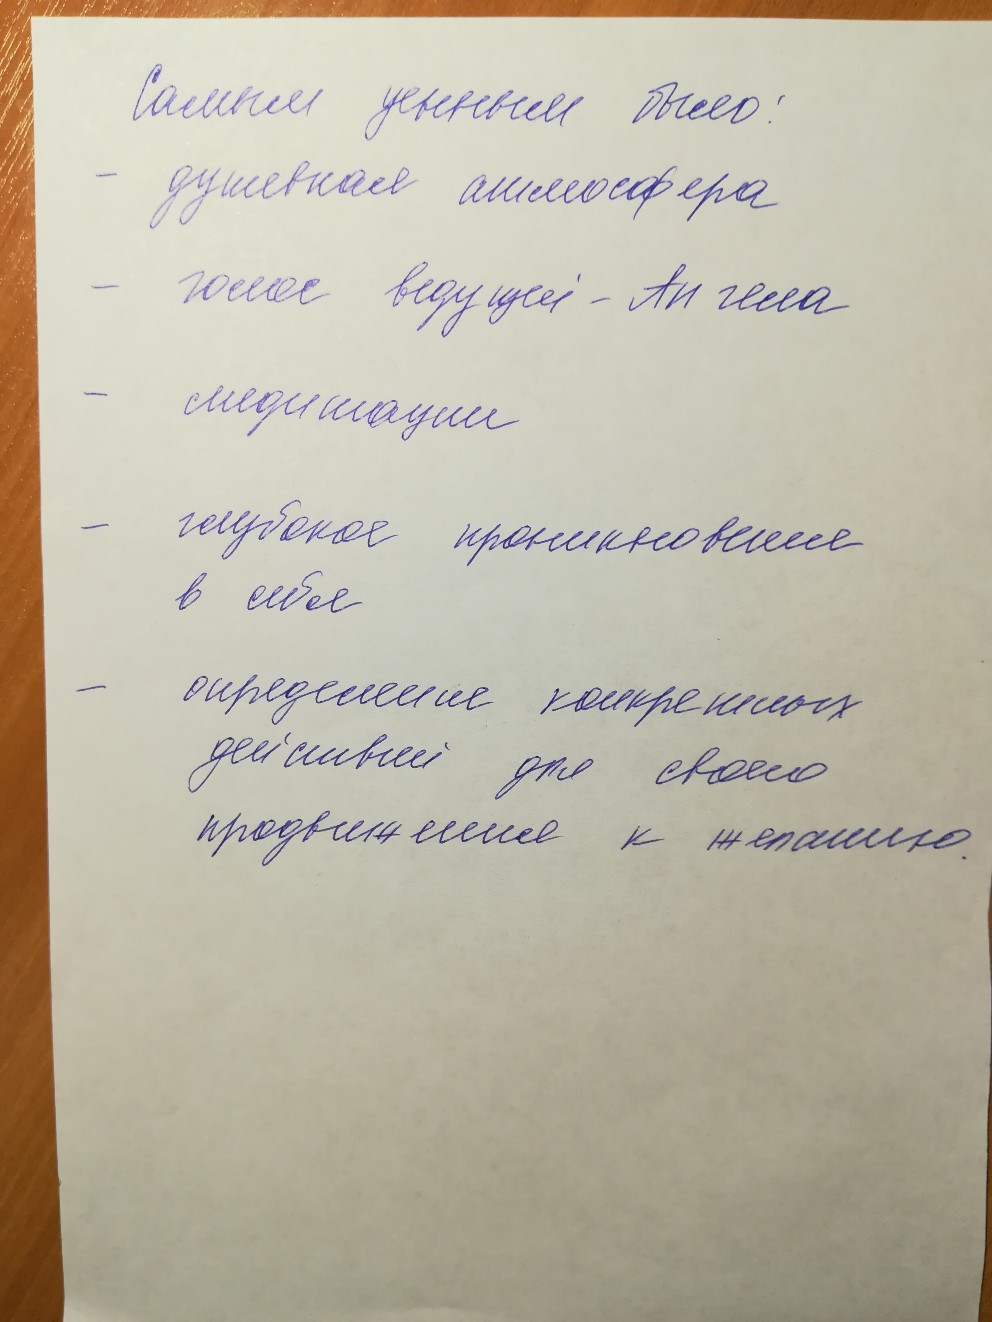 Самым ценным было:
- душевная атмосфера
- голос ведущей - Ангела
- медитации
- глубокое проникновение
в себя
- определение конкретных
действий для своего
продвижения к желанию.